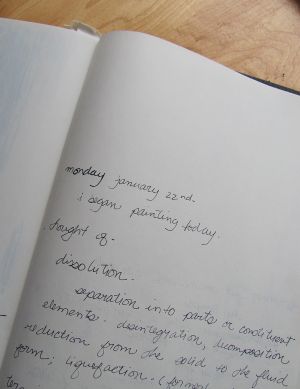 monday january 22nd.
i began painting today.
thought of.
dissolution.
separation into parts or constituent
elements. disintegration, decomposition
reduction from the solid to the fluid
form; liquefaction. (formal